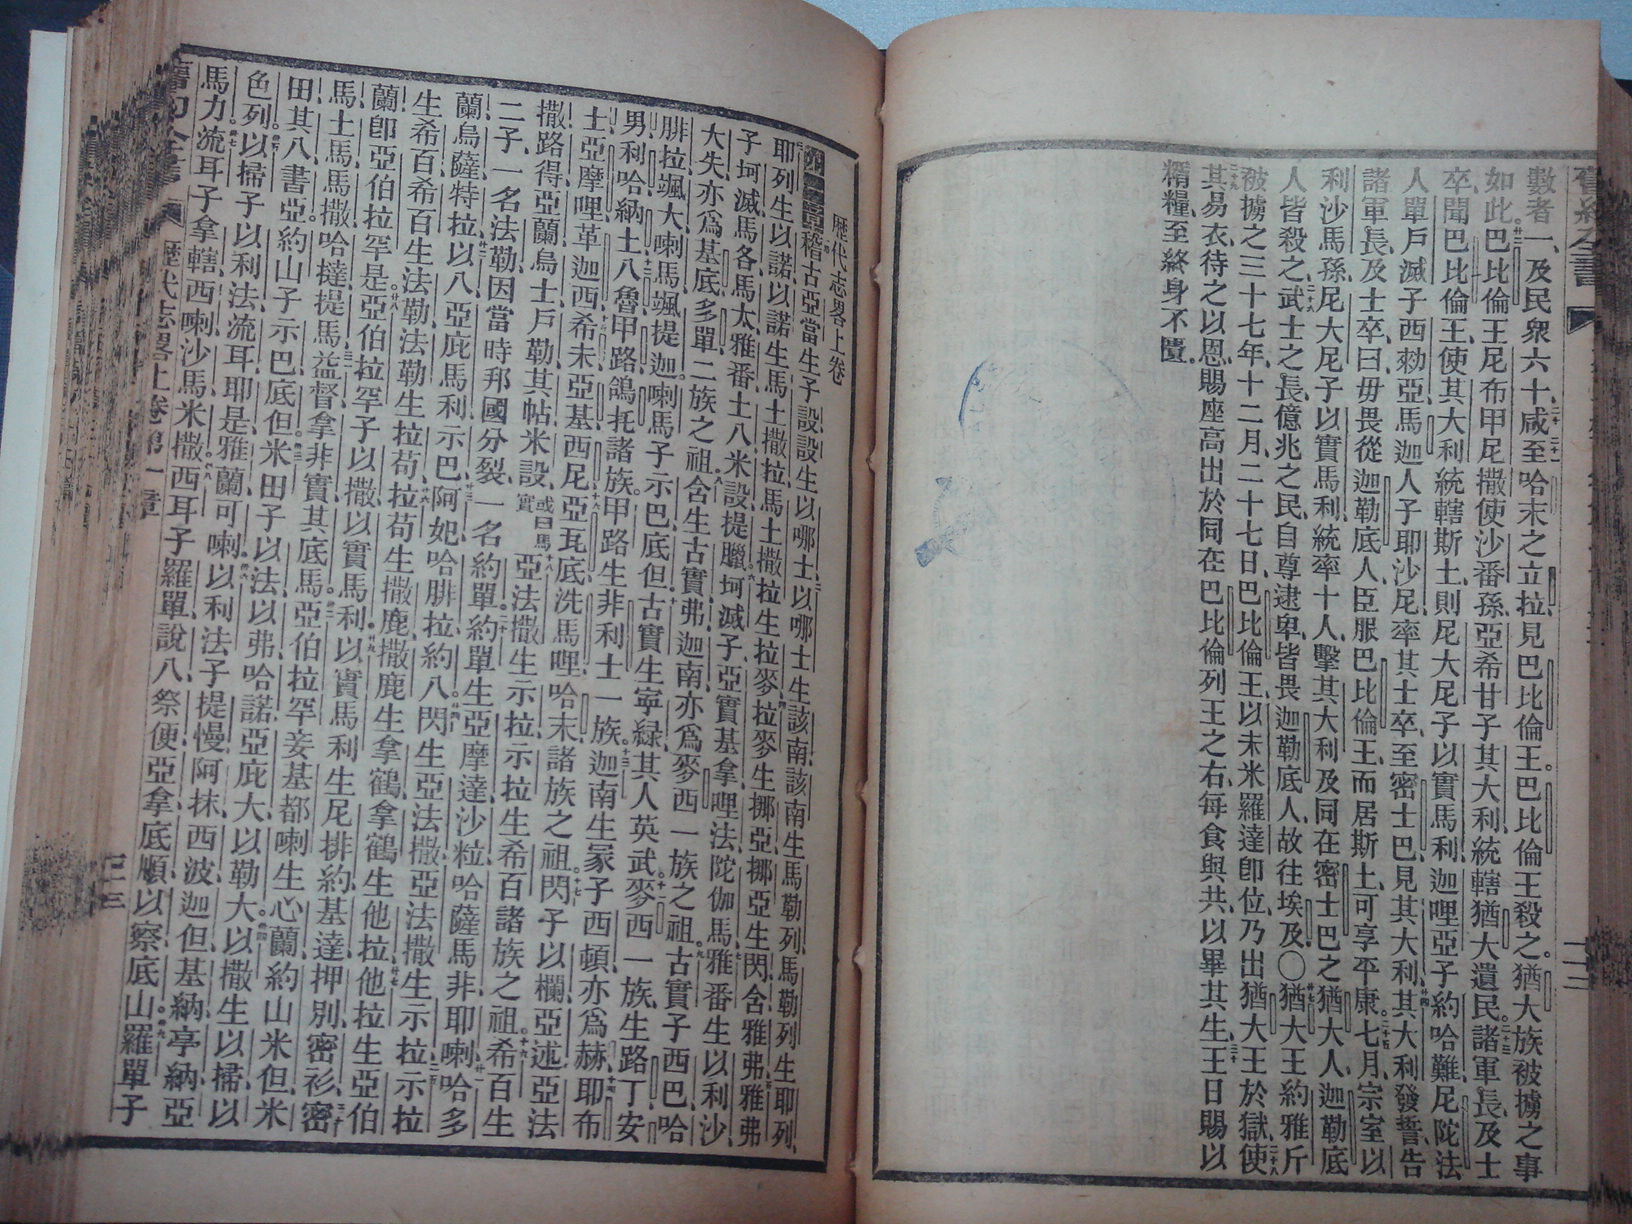 數者一及民衆六十咸至哈末之立拉見巴比倫王巴比倫王殺之猶大族被擄之事
如此巴比倫王尼布甲尼撒使沙番孫亞希甘子其大利統轄猶大遺民諸軍長及士
卒聞巴比倫王使其大利統轄斯土則尼大尼子以實馬利迦哩亞子約哈難尼陀法
人單戶滅子西勑亞馬迦人子耶沙尼率其士卒至密士巴見其大利其大利發誓告
諸軍長及士卒曰毋畏從迦勒底人臣服巴比倫王而居斯土可享平康七月宗室以
利沙馬孫尼大尼子以實馬利統率十人擊其大利及同在密士巴之猶大人迦勒底
人皆殺之武士之長億兆之民自尊逮卑皆畏迦勒底人故往埃及〇猶大王約雅斤
被擄之三十七年十二月二十七日巴比倫王以未米羅達卽位乃出猶大王於獄使
其易衣待之以恩賜座高出於同在巴比倫列王之右每食與共以畢其生王日賜以
糈糧至終身不匱
歷代志畧上卷
稽古亞當生子設設生以哪士以哪士生該南該南生馬勒列馬勒列生耶列
耶列生以諾以諾生馬土撒拉馬土撒拉生拉麥拉麥生挪亞挪亞生閃含雅弗雅弗
子坷滅馬各馬太雅番土八米設提臘坷滅子亞實基拿哩法陀伽馬雅番生以利沙
大失亦爲基底多單二族之祖含生古實弗迦南亦爲麥西一族之祖古實子西巴哈
腓拉颯大喇馬颯提迦喇馬子示巴底但古實生寧綠其人英武麥西一族生路丁安
男利哈納土八魯甲路鴿托諸族甲路生非利士一族迦南生冡子西頓亦爲赫耶布
士亞摩哩革迦西希未亞基西尼亞瓦底洗馬哩哈末諸族之祖閃子以欄亞述亞法
撒路得亞蘭烏士戶勒其帖米設或曰馬實亞法撒生示拉示拉生希百諸族之祖希百生
二子一名法勒因當時邦國分裂一名約單約單生亞摩達沙粒哈薩馬非耶喇哈多
蘭烏薩特拉以八亞庇馬利示巴阿妃哈腓拉約八閃生亞法撒亞法撒生示拉示拉
生希百希百生法勒法勒生拉苟拉苟生撒鹿撒鹿生拿鶴拿鶴生他拉他拉生亞伯
蘭卽亞伯拉罕是亞伯拉罕子以撒以實馬利以實馬利生尼排約基達押別密衫密
馬土馬馬撒哈撻提馬益督拿非實其底馬亞伯拉罕妾基都喇生心蘭約山米但米
田其八書亞約山子示巴底但米田子以法以弗哈諾亞庇大以勒大以撒生以掃以
色列以掃子以利法流耳耶是雅蘭可喇以利法子提慢阿抹西波迦但基納亭納亞
馬力流耳子拿轄西喇沙馬米撒西耳子羅單說八祭便亞拿底順以察底山羅單子
歷代志畧上卷第一章